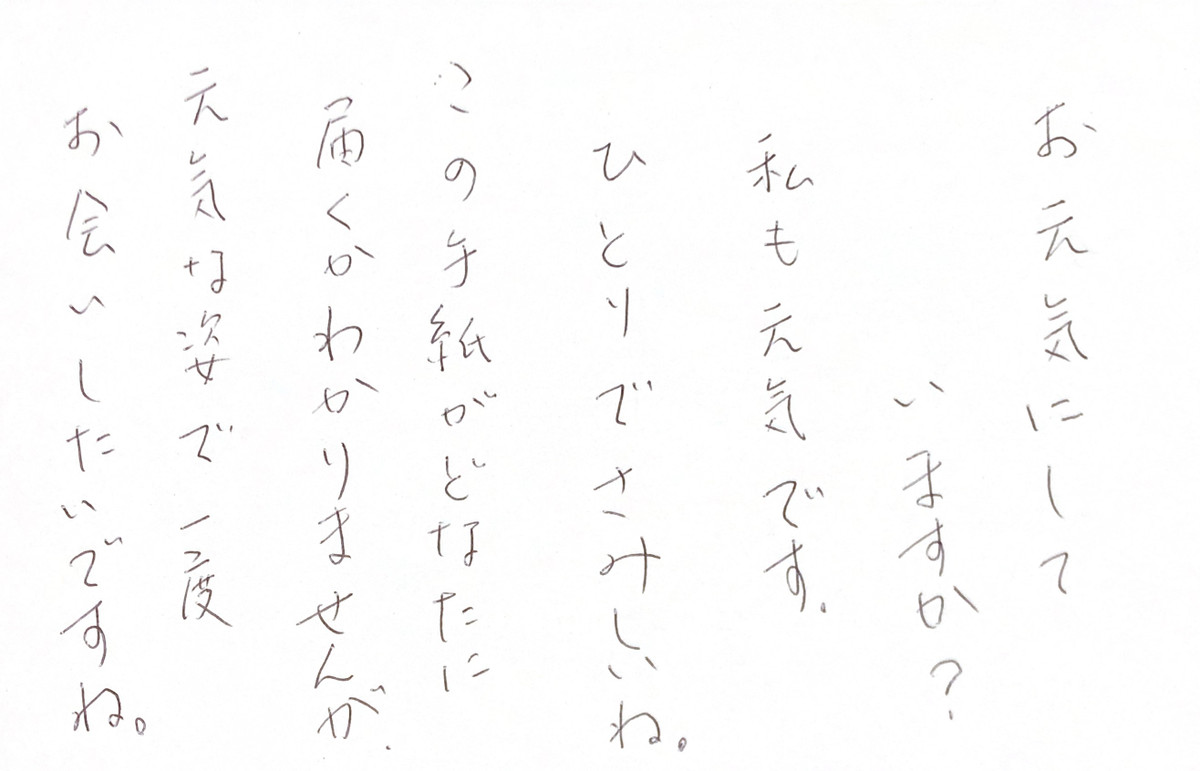 お元気にして
いますか？
私も元気です.
ひとりでさみしいね。
この手紙がどなたに
届くかわかりませんが.
元気な姿で一度
お会いしたいですね。